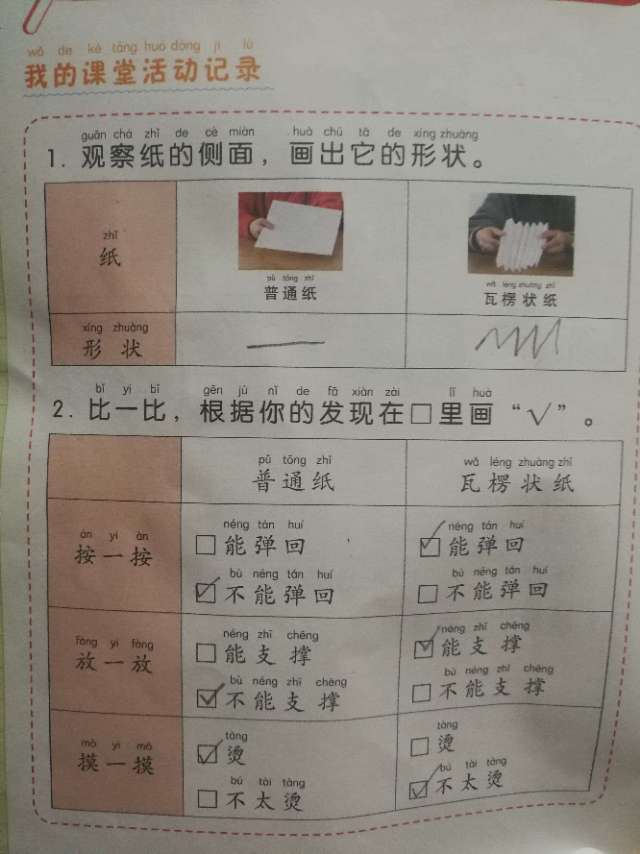 wǒ de kè táng huó dòng jì lù
我的课堂活动记录
guān chá zhǐ de cè miàn huà chū tā de xíng zhuàng
1. 观察纸的侧面，画出它的形状。
zhǐ
纸
pǔ tōng zhǐ
普通纸
wǎ léng zhuàng zhǐ
瓦楞状纸
xíng zhuàng
形状
bǐ yi bǐ gēn jù nǐ de fā xiàn zài lǐ huà
2. 比一比，根据你的发现在□里画“√”。
pǔ tōng zhǐ
普通纸
wǎ léng zhuàng zhǐ
瓦楞状纸
àn yi àn
按一按
néng tán huí
□能弹回
bù néng tán huí
☑不能弹回
néng tán huí
☑能弹回
bù néng tán huí
□不能弹回
fàng yi fàng
放一放
néng zhī chēng
□能支撑
bù néng zhī chēng
☑不能支撑
néng zhī chēng
☑能支撑
bù néng zhī chēng
□不能支撑
mō yi mō
摸一摸
tàng
☑烫
bú tài tàng
□不太烫
tàng
□烫
bú tài tàng
☑不太烫